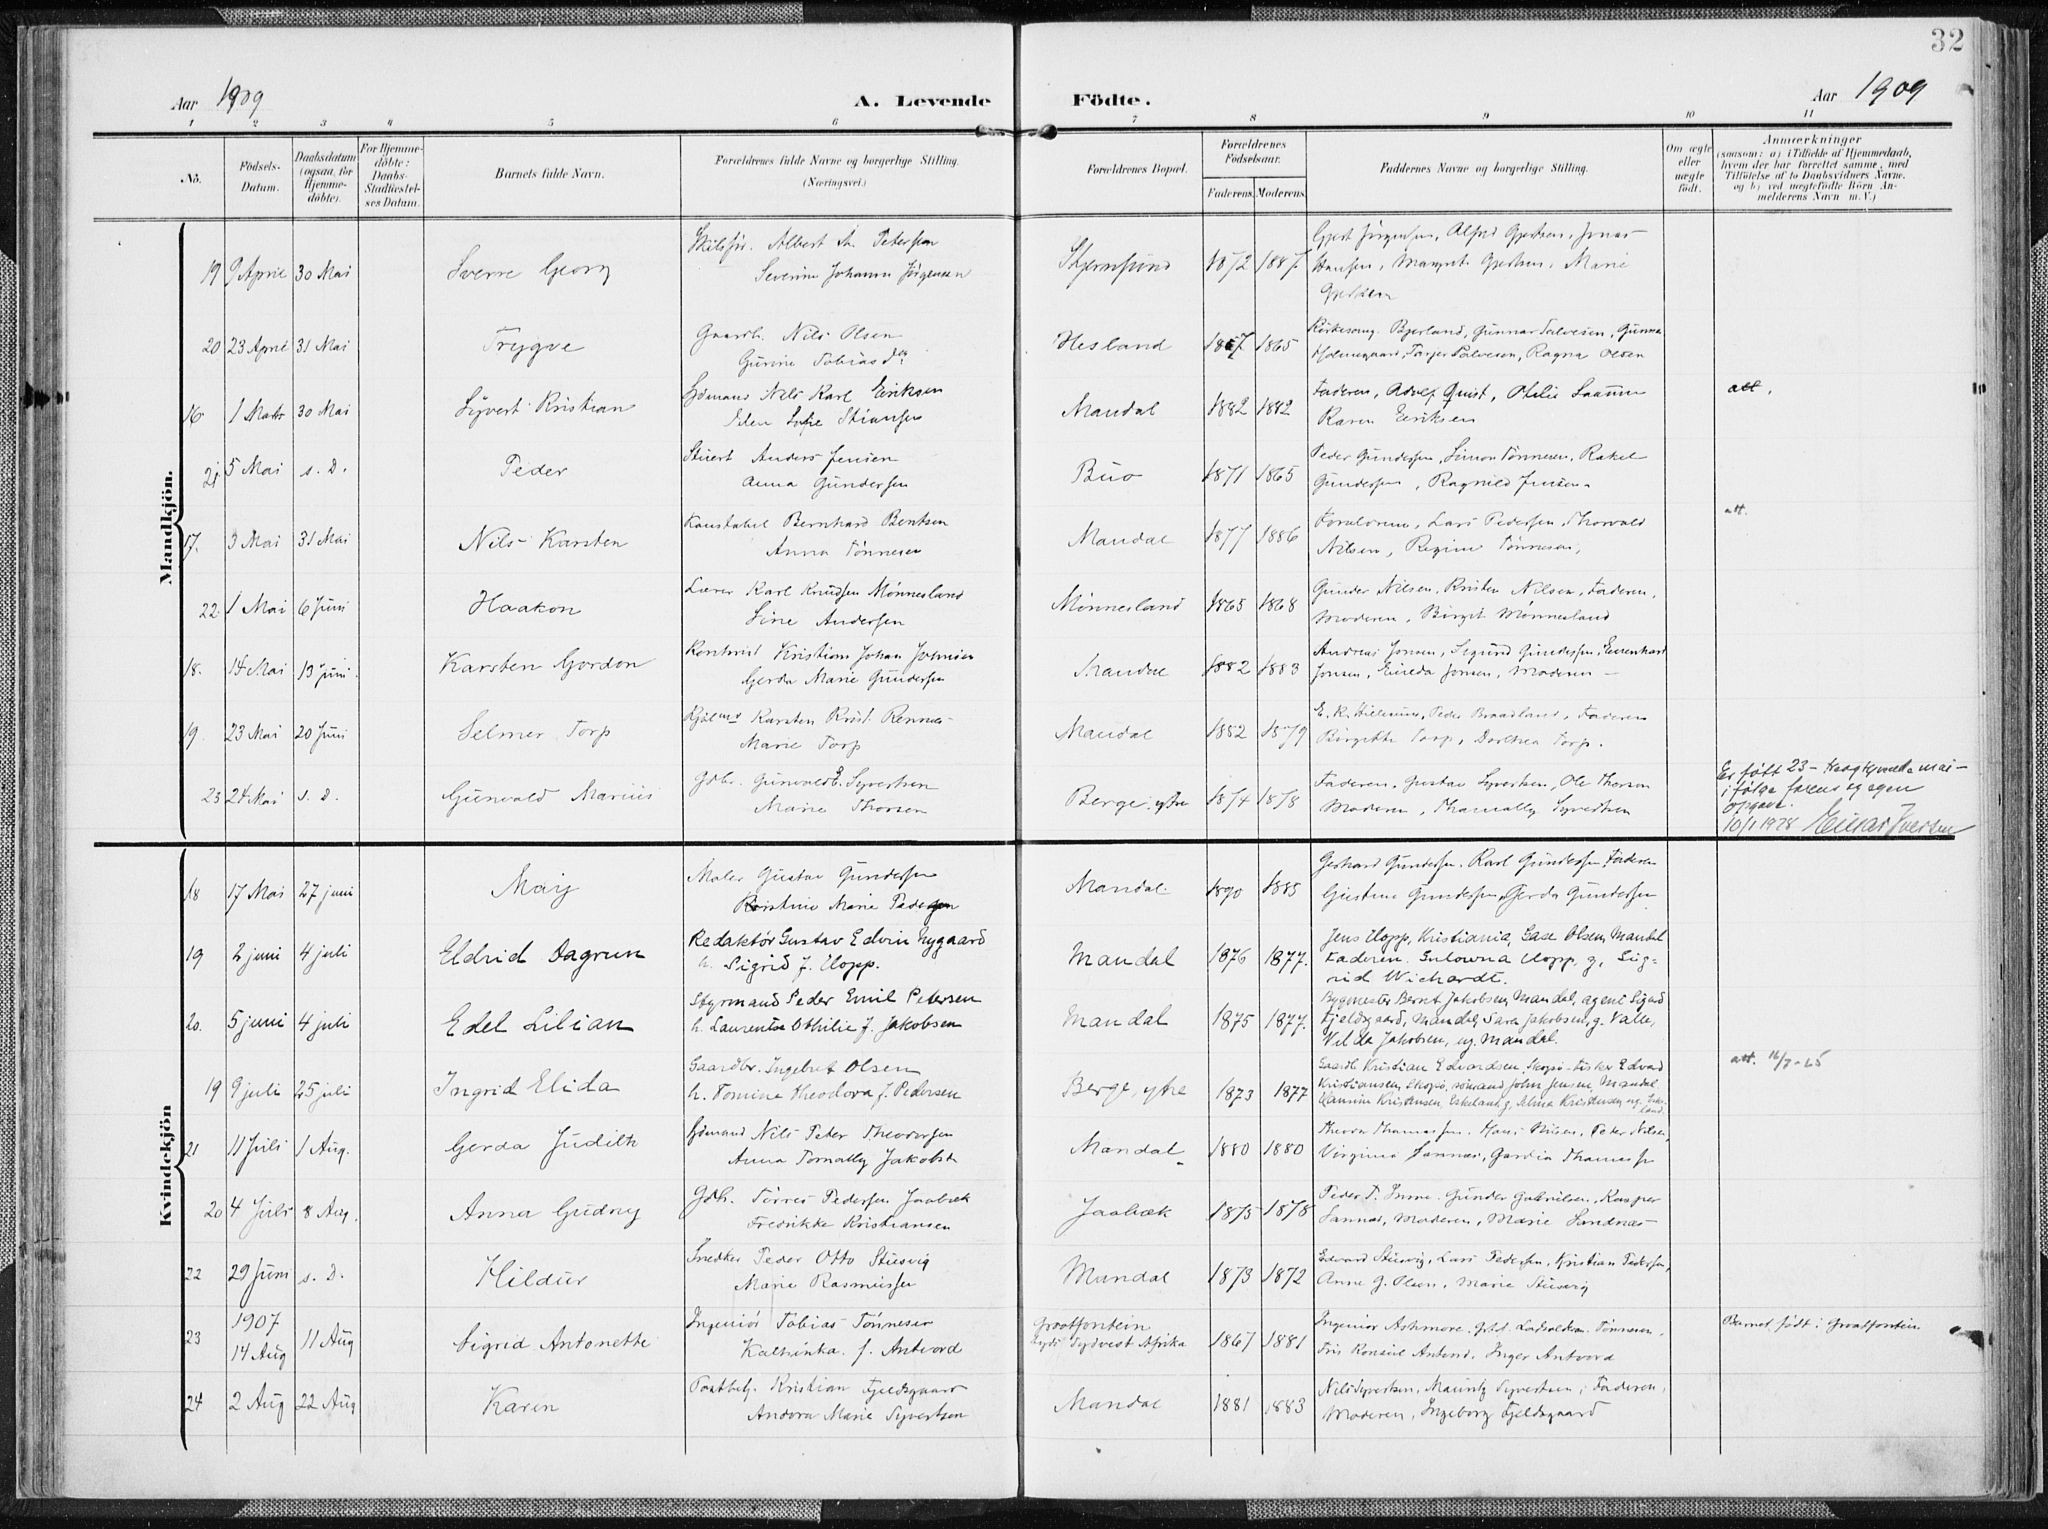 32
Aar 1909
A. Levende
Födte.
Aar 1909
1 2 3 4 5 6 7 8 9 10 11
No.
Födsels-
Datum.
Daabsdatum
(ogsaa for
Hjemme-
döbte).
For Hjemme-
döbte:
Daabs-
Stadfæstel-
ses Datum.
Barnets fulde Navn.
Forældrenes fulde Navne og borgerlige Stilling.
(Næringsvei.)
Forældrenes Bopæl.
Forældrenes
Födselsaar.
Faderens. Moderens.
Faddernes Navne og borgerlige Stilling.
Om ægte
eller
uægte
födt.
Anmærkninger
(saasom: a) i Tilfælde af Hjemmedaab,
hvem der har forrettet samme, med
Tilföielse af to Daabsvidners Navne.
og b) ved uægtefödte Börn An-
melderens Navn m. V.)
Mandkjön.
19 9 April 30 Mai Sverre Georg Albert A. Petersen
Severine Johanne Jörgensen
Skjernsund 1872 1887
Gjert Jörgensen, Alfred Gjertsen, Jonas
Hansen, Margrete Gjertsen, Marie
Gjertsen
20 23 April 31 Mai Trygve Gaardb. Nils Olsen
Gurine Tobiasdtr
Hesland 1867 1865
Kirkesang. Bjerland, Gunnar Salvesen, Gunna
Holmegaard, Tarjer Salvesen, Ragna Olsen
16 1 Marts 30 Mai Syvert Kristian Sömand Nils Karl Eriksen
Elen Sofie Stiansen
Mandal 1882 1882
Faderen, Adolf Quist, Otilie
Karen Eriksen
att.
21 5 Mai s. D. Peder Stuert Anders Jensen
Anna Gundersen
Buo 1871 1865
Peder Gundersen, Simon Tönnesen, Rakel
Gundersen, Ragnild Jensen
17. 3 Mai 31 Mai Nils Karsten Konstabel Bernhard Bentsen
Anna Tönnesen
Mandal 1877 1886
Forældrene, Lars Pedersen, Thorvald
Nilsen, Regine Tönnesen,
att.
22. 1 Mai 6 Juni Haakon Lærer Karl Knudsen Mönnesland
Sine Andersen
Mönnesland 1865 1868
Gunder Nilsen, Kristen Nilsen, Faderen,
Moderen, Birgit Mönnesland
18. 14 Mai 13 juni. Karsten Gordon Kristian Johan Johnsen
Gerda Marie Gundersen
Mandal 1882 1883
Andreas Jonsen, Sigurd Gundersen,
Jonsen, Jonsen, Moderen
19. 23 Mai 20 Juni Selmer Torp Kjöbmd Karsten Krist. Rennes
Marie Torp
Mandal 1852 1879
Peder Braadland, Faderen
Birgitte Torp, Dorthea Torp.
23 24 Mai s. D. Gunvald Marius Gdbr. Gunvald E. Syvertsen
Marie Thorsen
Berge, ytre 1874 1878
Faderen, Gustav Syvertsen, Ole Thorsen
Moderen, Thomally Syvertsen
Er født 23 mai
i følge farens eg egen
opgave.
10/1 1928 Einar Iversen
Kvindekjön
18 17 Mai 27 juni Maiy Maler Gustav Gundersen
Kristine Marie Pedersen
Mandal. 1890 1885
Gerhard Gundersen, Karl Gundersen, Faderen
Gustine Gundersen, Gerda Gundersen
19 2 juni 4 juli Eldrid Dagrun Redaktör Gustav Edvin Nygaard
h. Sigrid f. Hopp.
Mandal 1876 1877.
Jens Hopp, Kristiania, Gase Olsen, Mandal
Faderen. Gulowna Hopp, g, Sig-
rid Wichardt.
20. 5 juni 4 juli Edel Lilian Styrmand Peder Emil Petersen
h. Laurentse Othilie f. Jakobsen
Mandal 1875 1877.
Bygmester Bernt Jakobsen, Mandal, agent Sigurd
Fjeldsgaard, Mandal, Sara Jakobsen, g. Valle,
Vilda Jakobsen, ug. Mandal.
19 9 juli 25 juli Ingrid Elida Gaardbr. Ingebret Olsen
h. Tomine Theodora f. Pedersen
Berge, ytre 1873 1877
Gaardb Kristian Edvardsen, Skogsö, fisker Edvard
Kristiansen, Skogsö, sömand John Jensen, Mandal
Hansine Kristensen, Eskeland, g, Alma Kristensen ug. Eske-
land.
att. 16/7-25
21 11 Juli 1 Aug. Gerda Judith Sömand Nils Peter Theodorsen
Anna Tomally Jakobsen
Mandal 1880 1880
Theodor Thomassen, Hans Nilsen, Peter Nilsen,
Virginia Sannes, Gardia Thomassen
20 4 Juli 8 Aug. Anna Gudny Gdb. Törres Pedersen Jaabæk
Fredrikke Kristiansen
Jaabæk 1875 1878
Peder T. Imme, Gunder Gabrielsen, Kasper
Sannes, Moderen, Marie Sandnes
22 29 Juni s. D. Hildur Snedker Peder Otto Stusvig
Marie Rasmussen
Mandal 1873 1872
Edvard Stusvig, Lars Pedersen, Kristian Pedersen,
Anne G. Olsen, Marie Stusvig
23 1907
14 Aug 11 Aug Sigrid Antonette Ingeniör Tobias Tönnesen
Kathinka f. Antvord
Grootfontein
tysk Sydvest Afrika 1867 1881
Ingeniör Ashmore, Tönnesen,
Frk Konsul Antvord, Inger Antvord
Barnet født i Grootfontein
24 2 Aug 22 Aug Karen Kristian Fjeldsgaard
Andora Marie Syvertsen
Mandal 1881 1883
Nils Syvertsen, Mauritz Syvertsen, Faderen,
Moderen, Ingeborg Fjeldsgaard